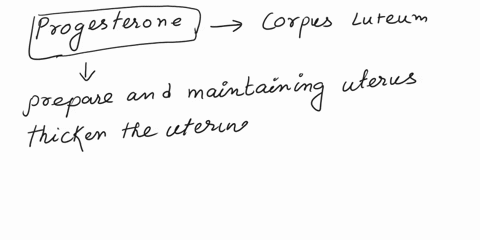 Progesterone → Corpus Luteum
↓
prepare and maintaining uterus
thicken the uterin